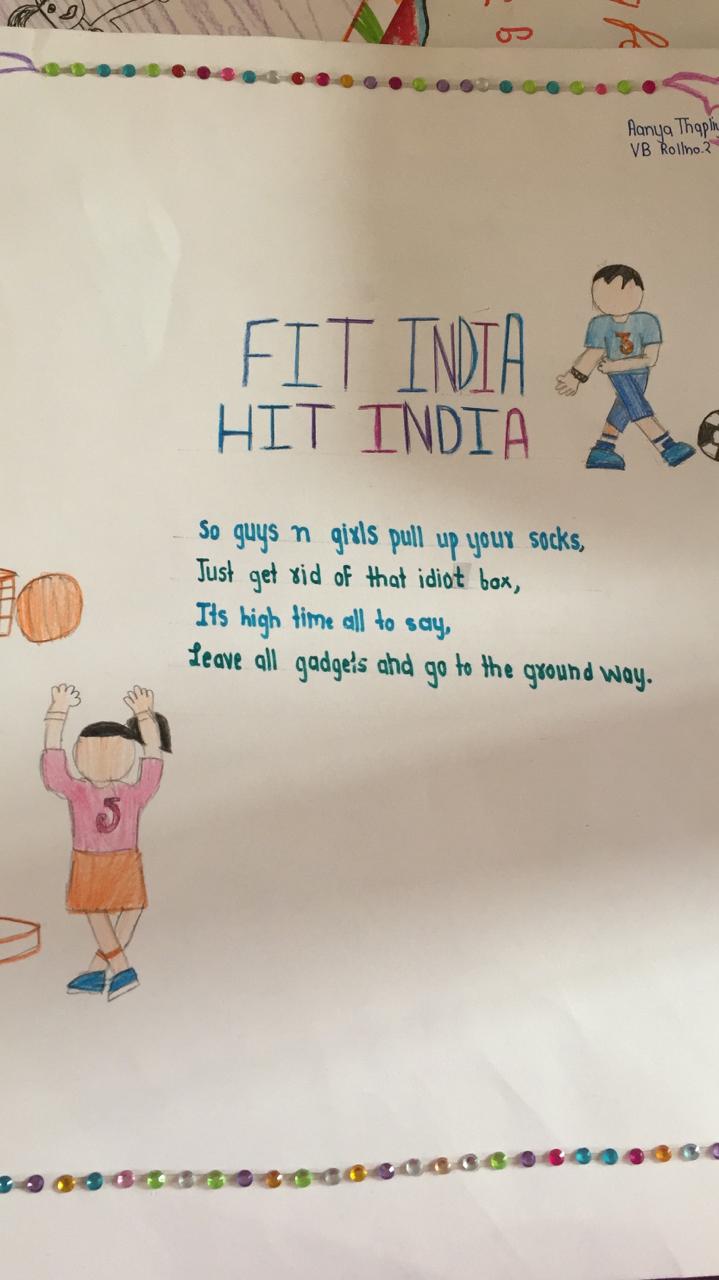 Aanya
VB Rollno.2
FIT INDIA
HIT INDIA
3
So guys n girls pull up your socks,
Just get rid of that idiot box,
Its high time all to say,
Leave all gadgets and go to the ground way.
5